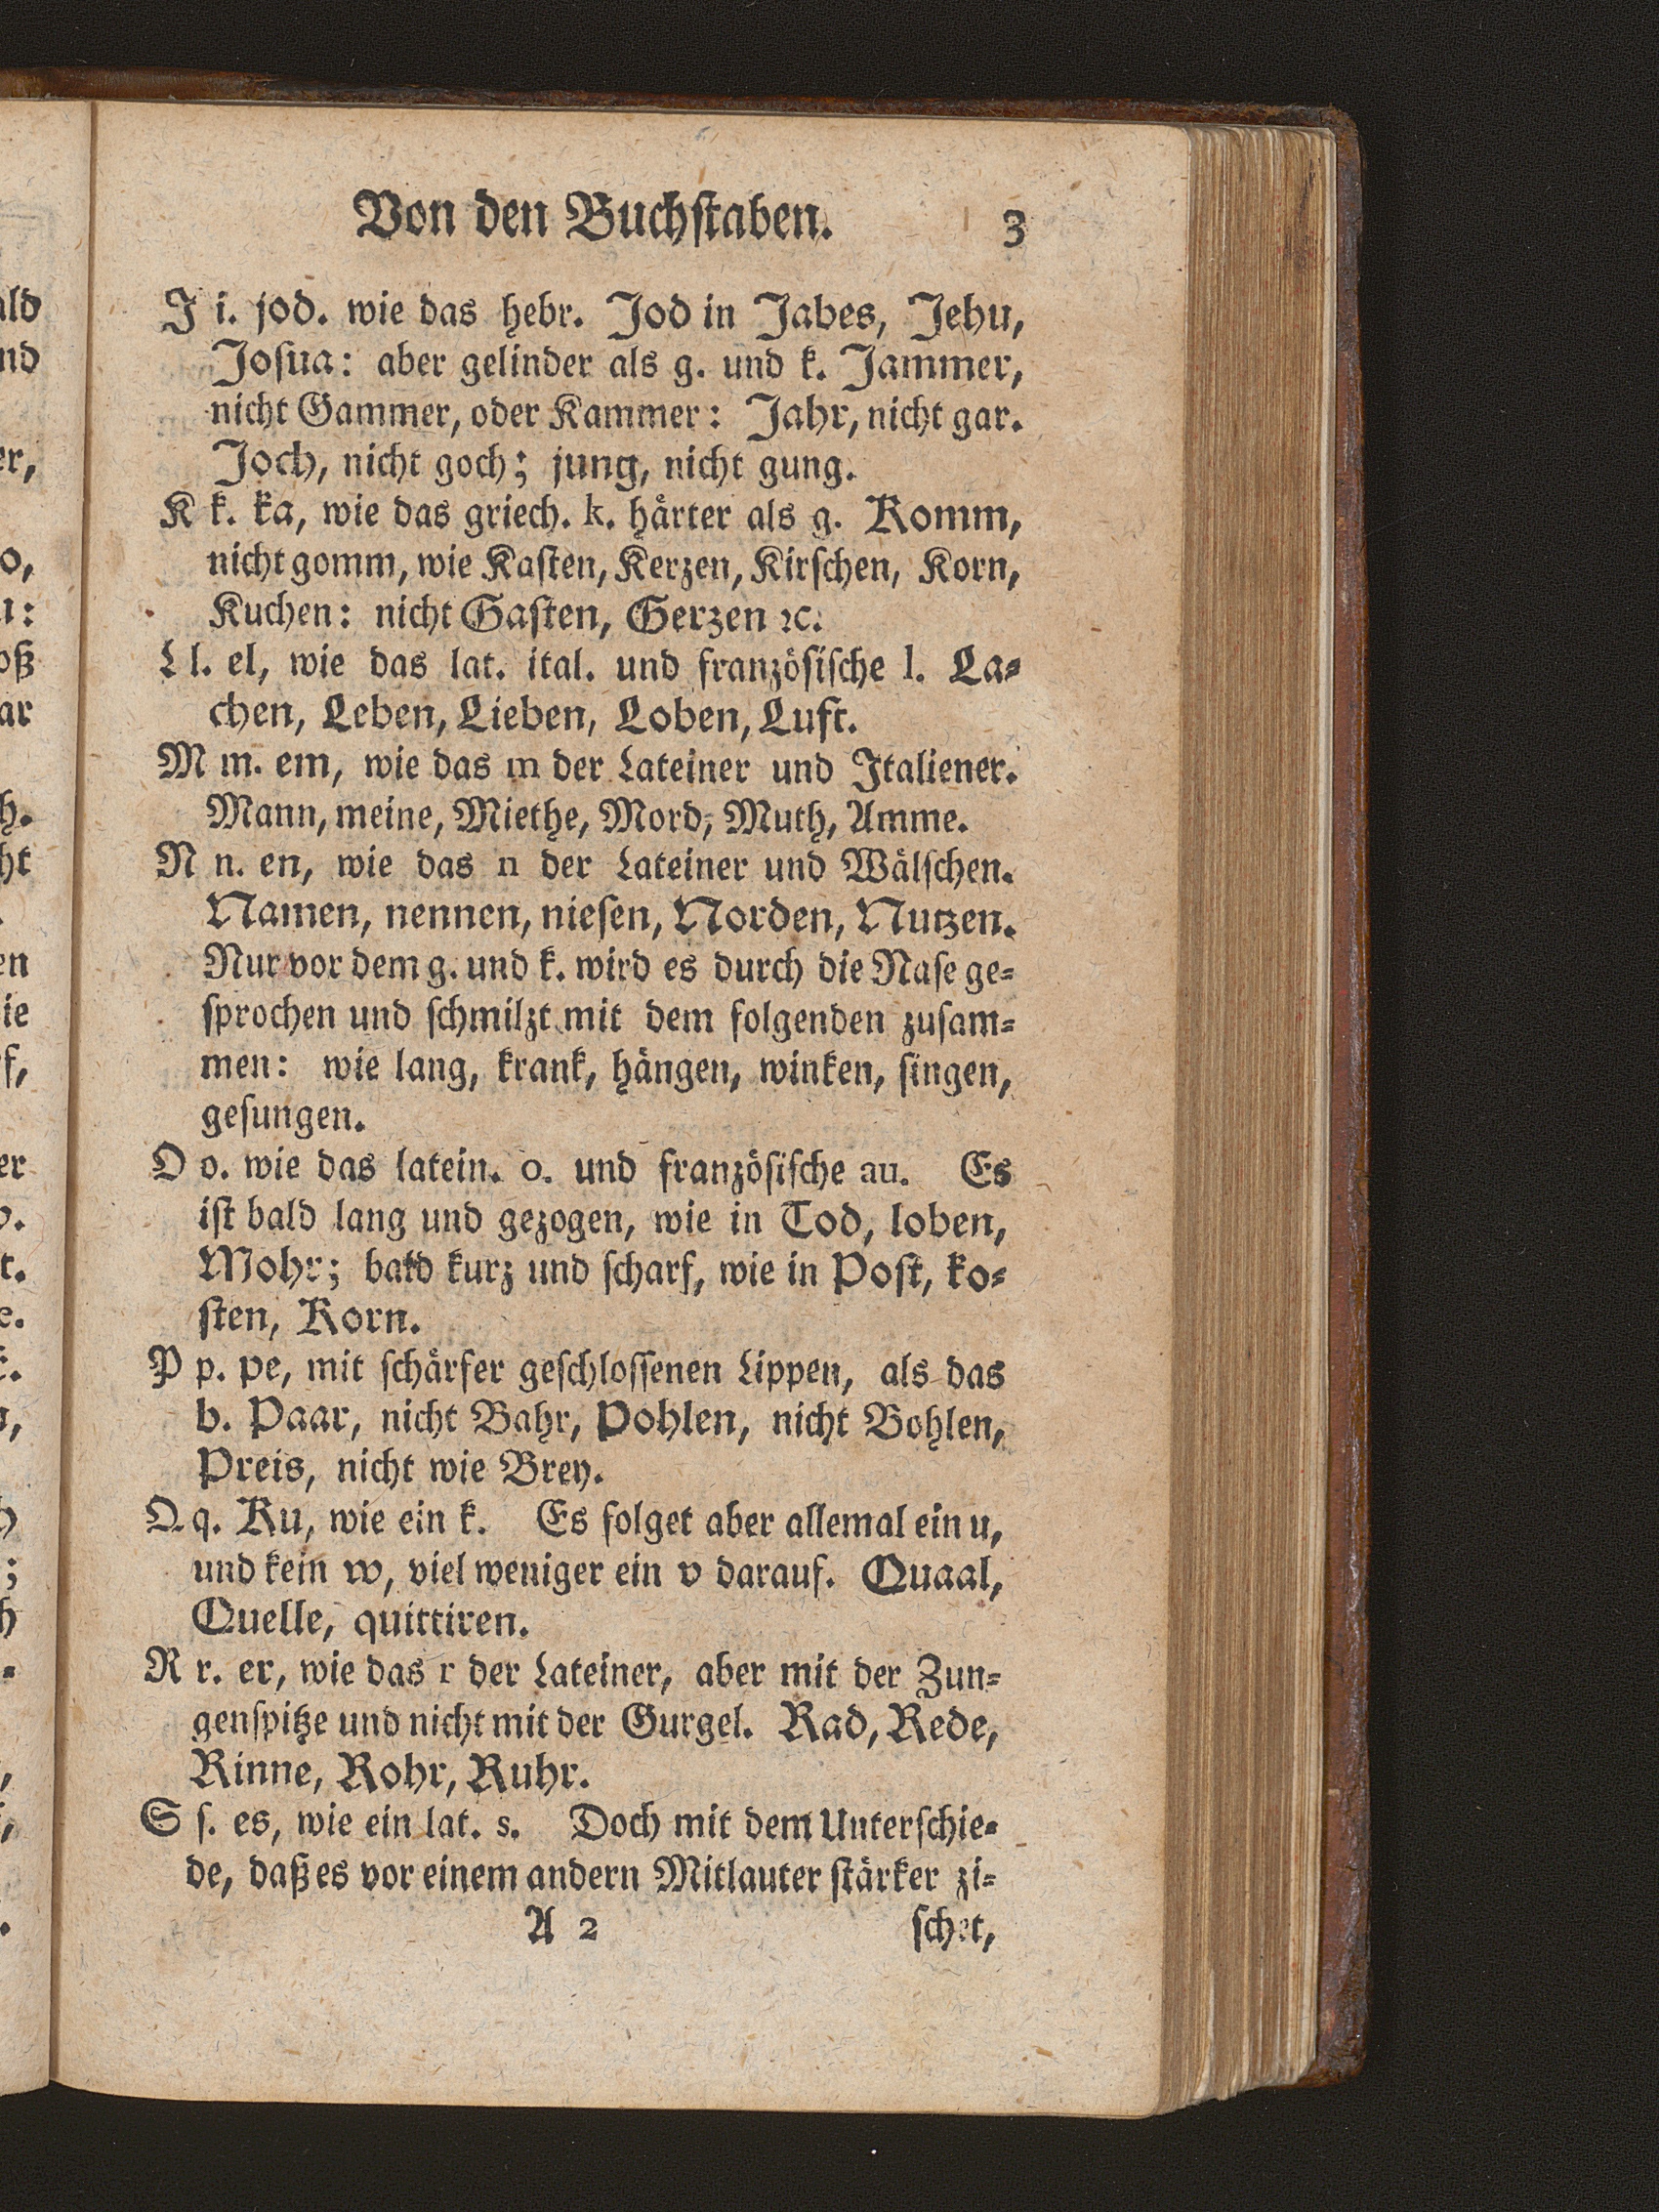 Von den Buchſtaben. 3
J i. jod. wie das hebr. Jod in Jabes, Jehu,
Joſua: aber gelinder als g. und k. Jammer,
nicht Gammer, oder Kammer: Jahr, nicht gar.
Joch, nicht goch; jung, nicht gung.
K k. ka, wie das griech. k. härter als g. Komm,
nicht gomm, wie Kaſten, Kerzen, Kirſchen, Korn,
Kuchen: nicht Gaſten, Gerzen ꝛc.
L l. el, wie das lat. ital. und franzöſiſche l. La⸗
chen, Leben, Lieben, Loben, Luft.
M m. em, wie das m der Lateiner und Italiener.
Mann, meine, Miethe, Mord, Muth, Amme.
N n. en, wie das n der Lateiner und Wälſchen.
Namen, nennen, nieſen, Norden, Nutzen.
Nur vor dem g. und k. wird es durch die Naſe ge⸗
ſprochen und ſchmilzt mit dem folgenden zuſam⸗
men: wie lang, krank, hängen, winken, ſingen,
geſungen.
O o. wie das latein. o. und franzöſiſche au. Es
iſt bald lang und gezogen, wie in Tod, loben,
Mohr; bald kurz und ſcharf, wie in Poſt, ko⸗
ſten, Korn.
P p. pe, mit ſchärfer geſchloſſenen Lippen, als das
b. Paar, nicht Bahr, Pohlen, nicht Bohlen,
Preis, nicht wie Brey.
Q q. Ku, wie ein k. Es folget aber allemal ein u,
und kein w, viel weniger ein v darauf. Quaal,
Quelle, quittiren.
R r. er, wie das r der Lateiner, aber mit der Zun⸗
genſpitze und nicht mit der Gurgel. Rad, Rede,
Rinne, Rohr, Ruhr.
S ſ. es, wie ein lat. s. Doch mit dem Unterſchie⸗
de, daß es vor einem andern Mitlauter ſtärker zi⸗
A 2 ſchet,